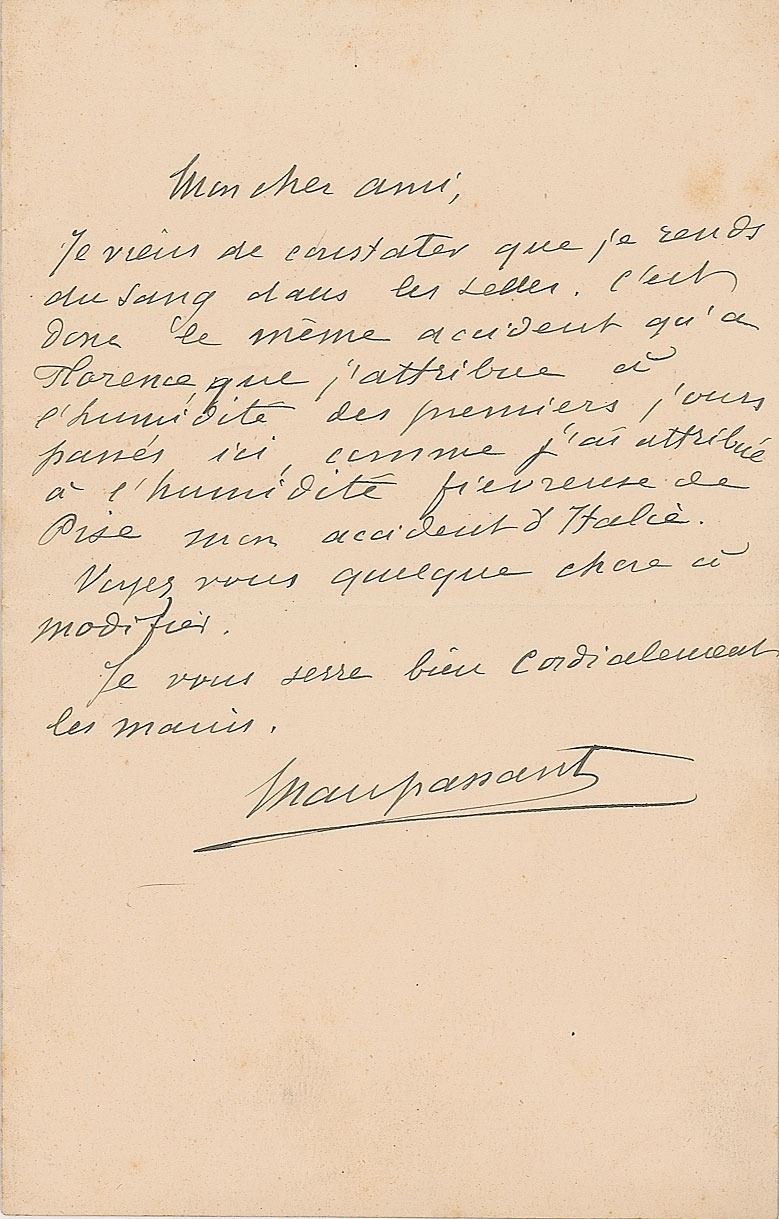 Mon cher ami,
Je viens de constater que je rends
du sang dans les selles. C'est
donc le même accident qu'a
Florence, que j'attribue à
l'humidité des premiers jours
passés ici, comme j'ai attribué
à l'humidité fievreuse de
Pise mon accident d'Italie.
Voyez vous quelque chose à
modifier.
Je vous serre bien cordialement
les mains.
Maupassant